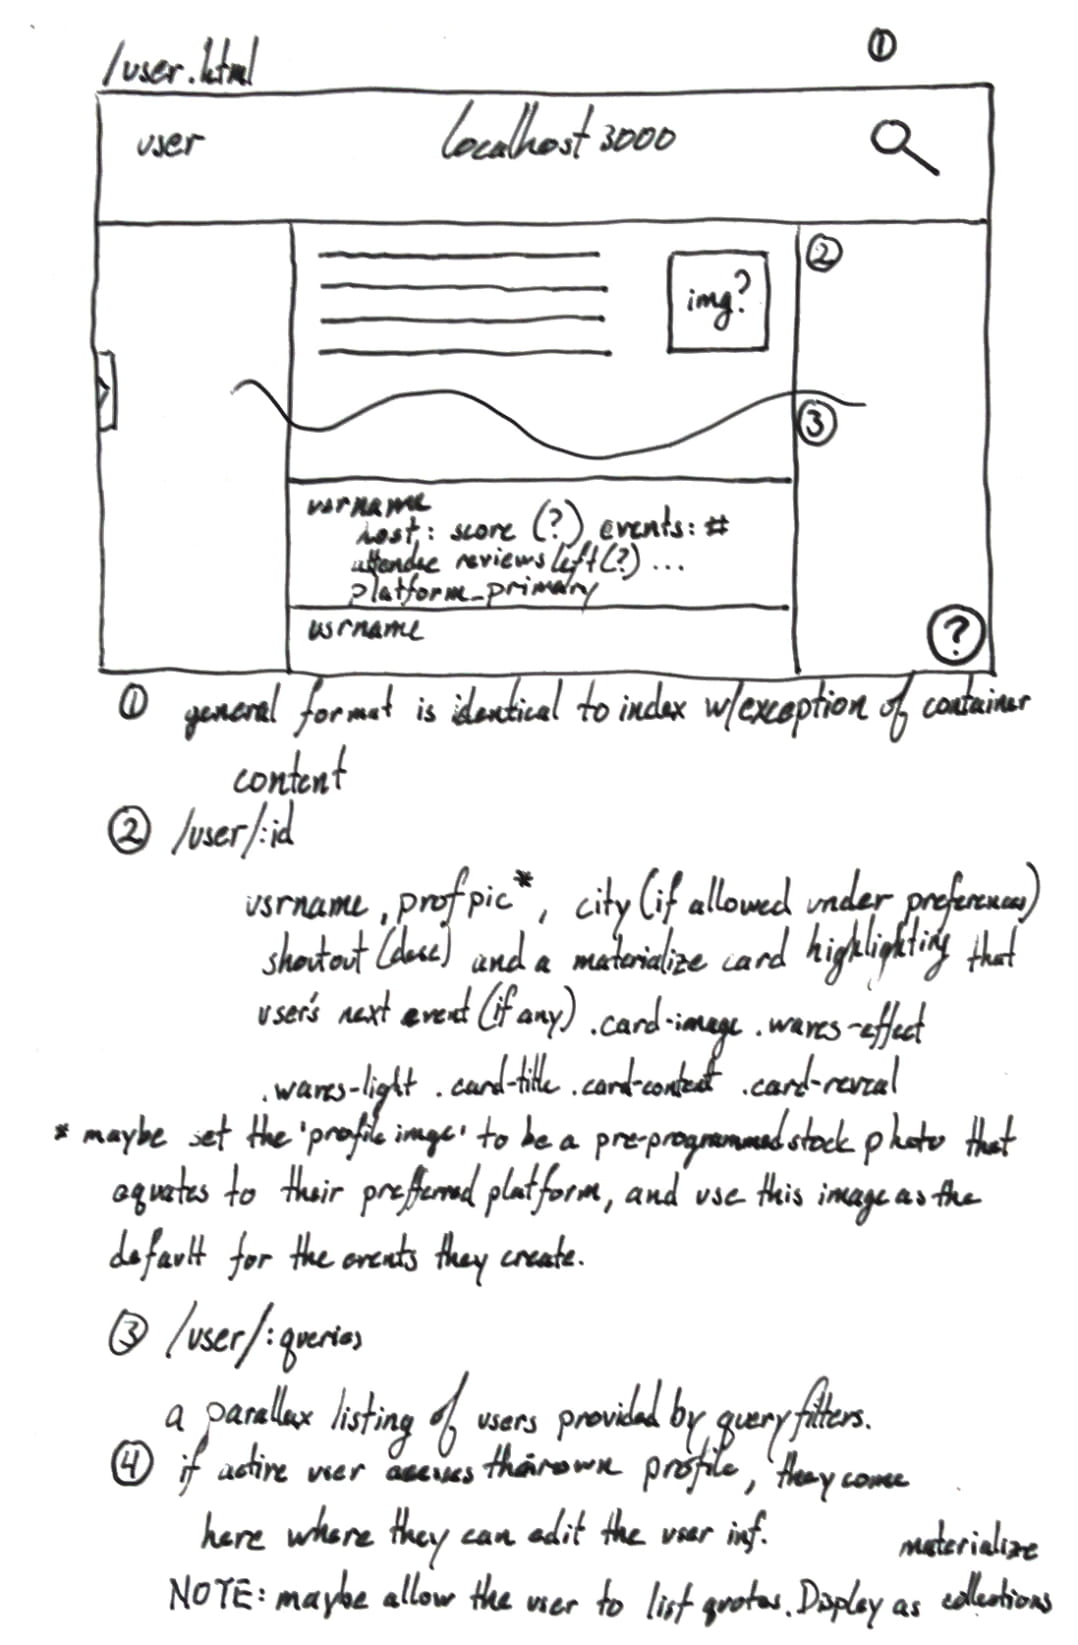 /user.html
①
user
localhost 3000
②
img?
③
usrname
host: score (?) events: #
attendee reviews left(?) ...
platform_primary
usrname
?
① general format is identical to index w/exception of container
content
② /user/:id
usrname, prof pic*, city (if allowed under preferences)
shoutout (desc) and a materialize card highlighting that
user's next event (if any) .card-image .waves-effect
.waves-light .card-title .card-content .card-reveal
* maybe set the 'profile image' to be a pre-programmed stock photo that
equates to their preffered platform, and use this image as the
default for the events they create.
③ /user/:queries
a parallax listing of users provided by query filters.
④ if active user access their own profile, they come
here where they can edit the user inf.
NOTE: maybe allow the user to list quotes. Display as materialize collections